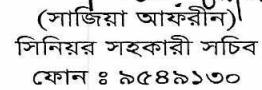 (সাজিয়া আফরীন)
সিনিয়র সহকারী সচিব
ফোন ঃ ৯৫৪৯১৩০